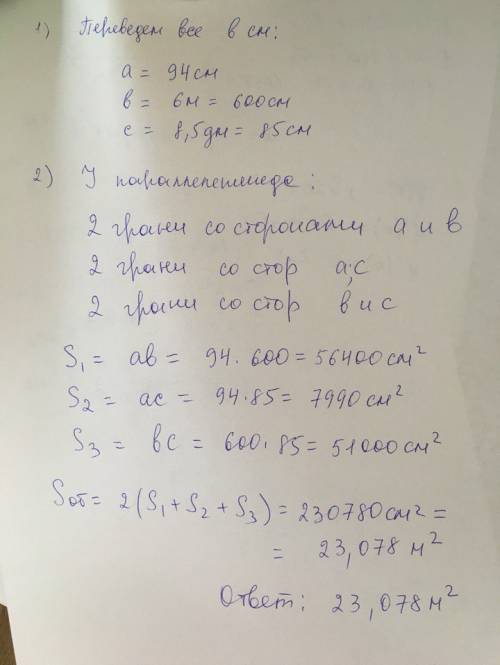 1) Переведем все в см:
a = 94см
в = 6м = 600см
с = 8,5дм = 85см
2) У параллепепипеда:
2 грани со сторонами а и в
2 грани со стор а;с
2 грани со стор в и с
S₁ = ab = 94·600 = 56400 см²
S₂ = ac = 94·85 = 7990 см²
S₃ = вc = 600·85 = 51000 см²
Sоб = 2(S₁ + S₂ + S₃) = 230780 см² =
= 23,078 м²
Ответ: 23,078 м²